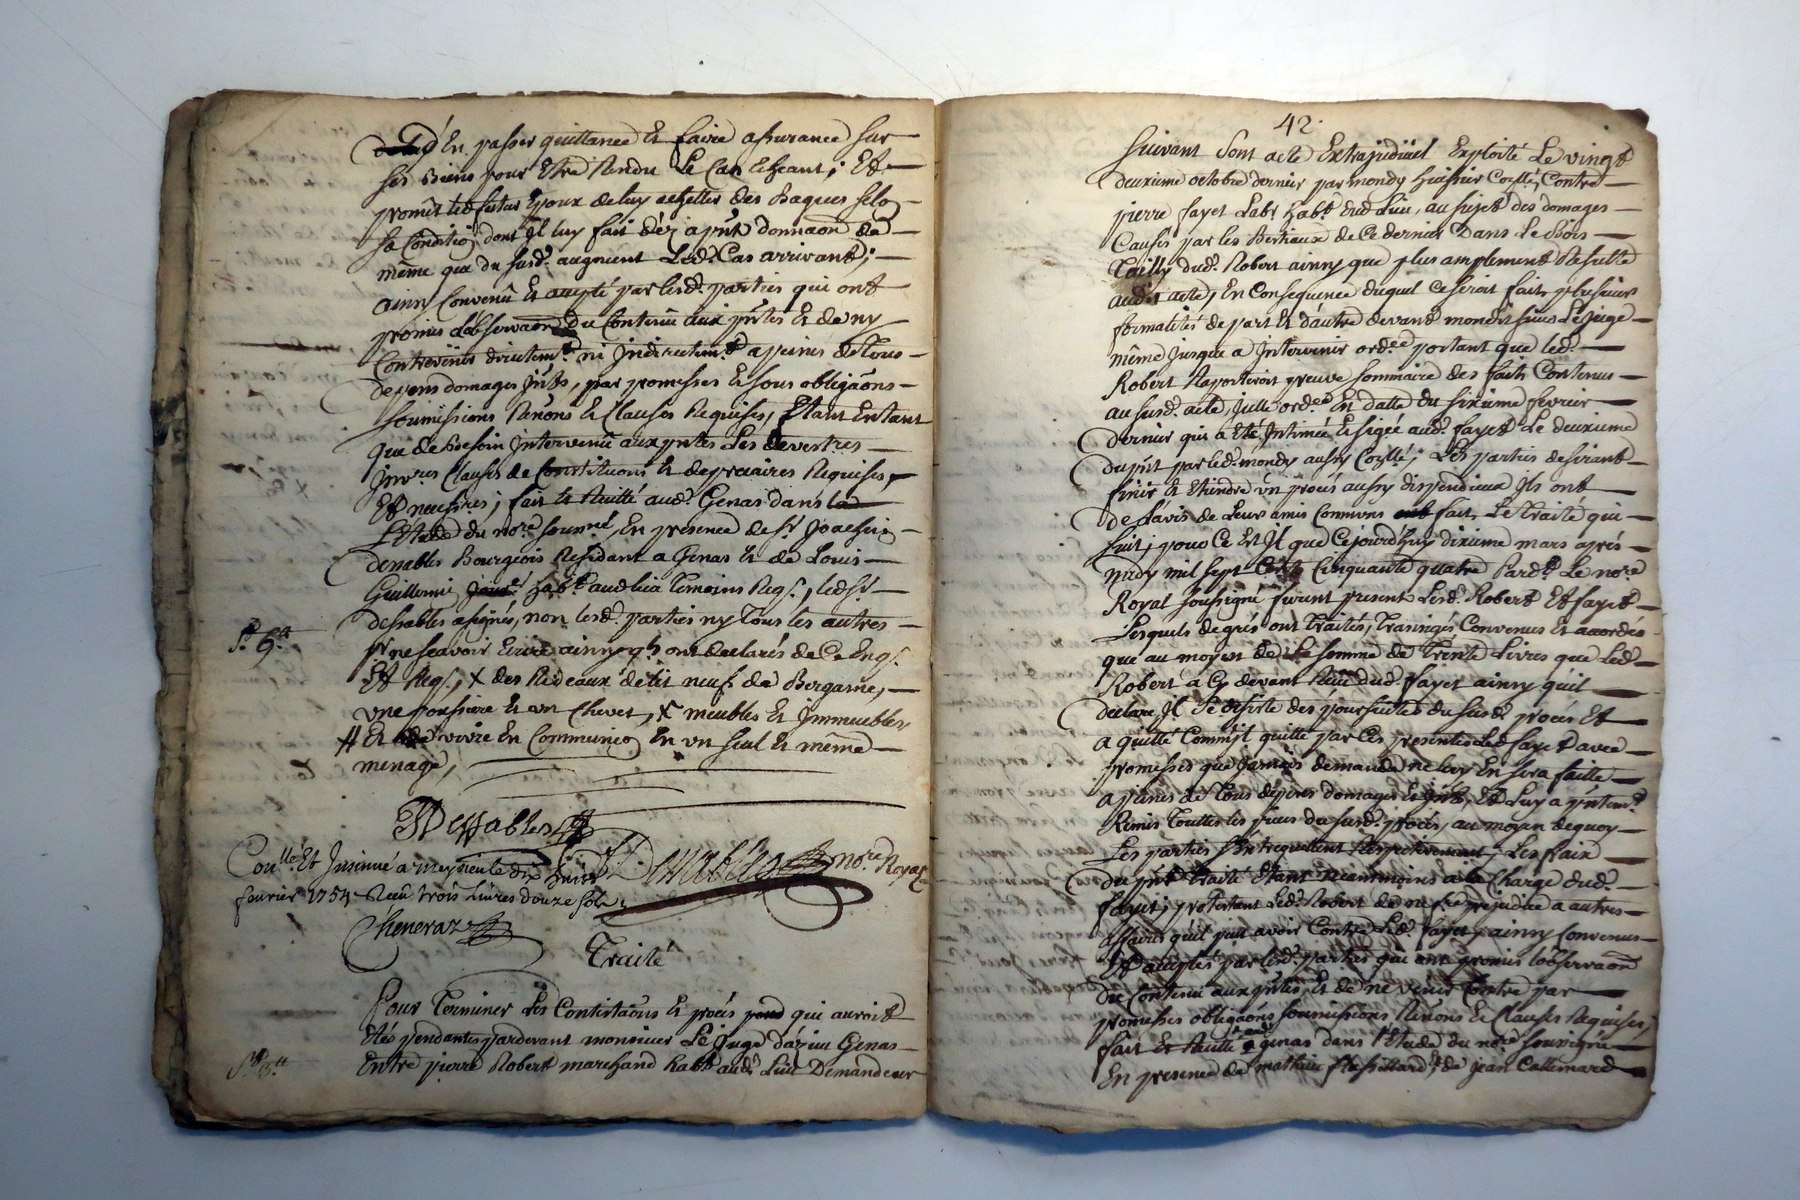 En passer quittance et faire assurance sur
ses Biens pour Etre Rendu Le Cas Echeant; Et
promet led. futur Epoux de luy achetter des Bagues selon
sa Condition dont Il luy fait déz apñt donnaon de
même que du susd. augment Led. Cas arrivant;
ainsy Convenû Et accepté par lesd. parties qui ont
promis L'observaon du Contenu aux pñtes Et de ny
Contrevenir directemt. ni Indirectemt. a peines de Tous
depens domages Jnts, par promesses Et sous obligaons
soumissions Renons Et Clauses Requises, Etant Entant
que de Besoin Intervenû aux pntes Les devestres
Jnvres Clauses de Constituons Et de precaires Requises
Et necessres; fait Et Recitté aud. Genas dans
L'Etude du nore. soussné., En presence de sr. Joachein
denables Bourgeois Residant a Genas Et de Louis
Guillermin habt. aud. lieu Temoins Reqs., led. sr.
dessables a signés, non lesd. parties ny Tous les autres
Sr. 6.a
pr ne scavoir Ecrire ainsy qls ont declarés de Ce Enqs.
Et Reqs., X des Rideaux detis neuf de Bergame,
vne poussiere Et vn Chevet, X meubles Et Jmmeubles
# Et vivre En Communion En vn seul Et même
menage,
JDessables
nore. Royal
Conllé. Et Jnsinué a meysieu le dix huit
fevrier 1754 Receu trois Livres douze sols;
Cheneraz
Traité
Pour Terminer Les Contestaons Et procés qui auroit
Etés pendantes pardevant monsieur Le Juge d'azieu Genas
Sr. 8.a
Entre pierre Robert marchand habt. aud. Lieu Demandeur
42.
Suivant Sont acte Extrajudiciel Exploité Le vingt
deuxieme octobre dernier par mondy huissier Conllé., Contre
pierre fayet Labr. habt. dud. Lieu, au sujet des domages
Causés par les Bestiaux de Ce dernier Dans Le Bois
Tailly dud. Robert ainsy que plus amplement Resulte
audit acte, En Consequence duquel Ce seroit fait plusieurs
formalités de part Et d'autre devant mondit sieur Le Juge
même Jusque a Intervenir ordce. portant que led.
Robert Raporteroit preuve sommaire des faits Contenus
au susd. acte, Jcelle ordce. En datte du sixieme fevrier
dernier qui a Eté Intimée, Et sigée aud. fayet Le deuxieme
du pñt par led. mondy aussy Conllé.; Les parties desirant
finir Et Eteindre vn procés aussy dispendieux Ils ont
de l'avis de Leurs amis Communs fait Le Traité qui
suit, pour Ce Est Il que Cejourdhuy dixieme mars aprés
midy mil sept Cents Cinquante quatre Pardt. Le nore.
Royal soussigné furent presents Lesd. Robert Et fayet
Lesquels de grés ont Traités, Transigés Convenus Et accordés
que au moyen de La somme de Trente Livres que Led.
Robert a Cy devant Receu dud. fayet ainsy quil
declare, Il se desiste des poursuites du susd. procés Et
a quitté Comm'Il quitte par Ces presentes Led. fayet avec
promesses que Jamais demande ne luy En sera faitte
a peines de Tous depens domages Et Jnts, Et Luy a pñtemt.
Remis Touttes les pieces du susd. procés, au moyen dequoy
Les parties sentrequittent Respectivement; Les frais
du pñt Traité Etant neammoins a la Charge dud.
fayet; protestant Led. Robert de ne se prejudice a autres
affaires quil peut avoir Contre Led. fayet, ainsy Convenus
Et acceptés par lesd. parties qui ont promis l'observaon
du Contenû aux pñtes, Et de ne venir Contre par
promesses obligaons soumissions Renons Et Clauses Requises,
fait Et Recitté aud. genas dans l'Etude du nore. soussigné
En presence de mathieu flassillard, Et de jean Callemard